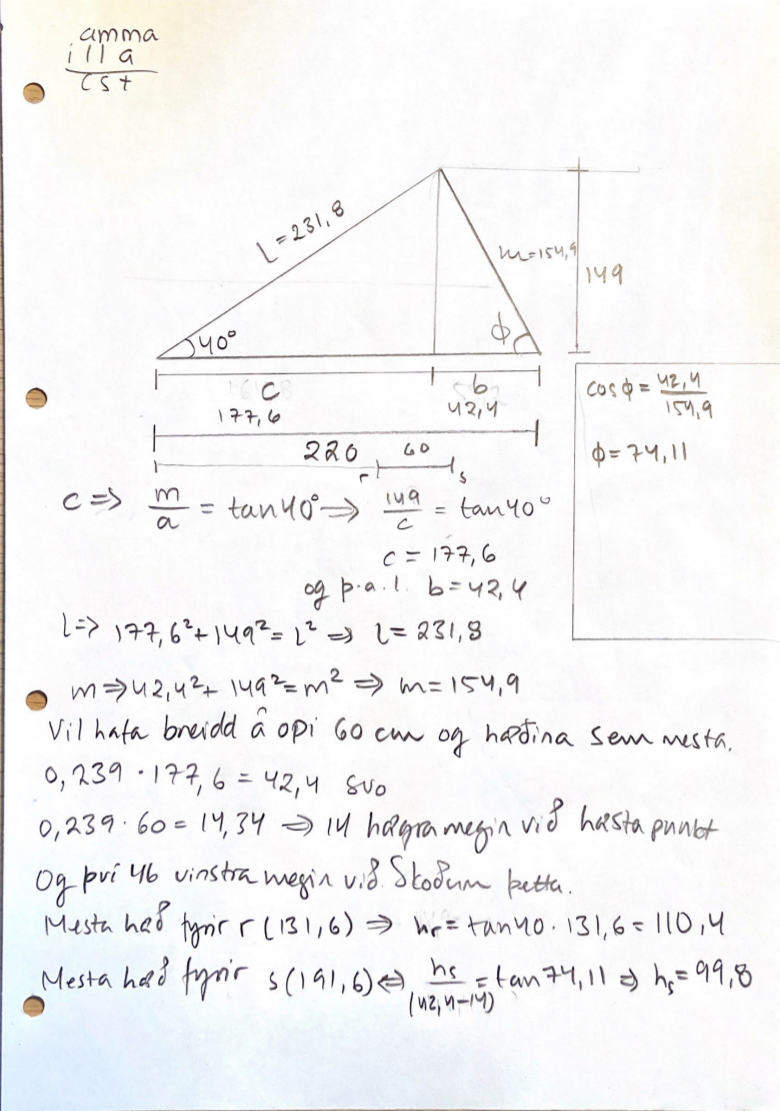 amma
illa
cst
L=231,8
m=154,9
149
40°
ϕ
c
b
177,6
42,4
220
60
r
s
cos ϕ = 42,4/154,9
ϕ = 74,11
c => m/a = tan40° => 149/c = tan40°
c = 177,6
og þ.a.l. b=42,4
l=> 177,6²+149²=L² => l= 231,8
m=>42,4²+149²=m² => m=154,9
Vil hafa breidd á opi 60 cm og hæðina sem mesta.
0,239 · 177,6 = 42,4 svo
0,239 · 60 = 14,34 => 14 hægra megin við hæsta punkt
Og því 46 vinstra megin við. Skoðum þetta.
Mesta hæð fyrir r (131,6) => hr = tan40 · 131,6 = 110,4
Mesta hæð fyrir s(191,6) <=> hs/(42,4-14) = tan74,11 => hs = 99,8